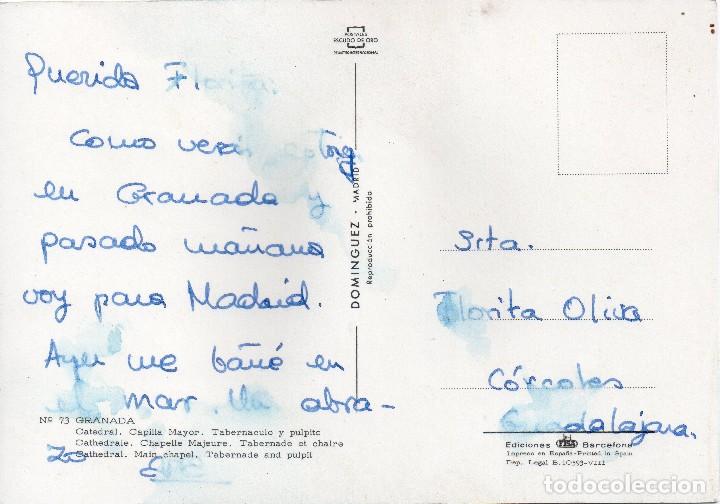 POSTALES
ESCUDO DE ORO
Querida Florita:
Como verás estoy
en Granada y
pasado mañana
voy para Madrid.
Ayer me bañé en
el mar. Un abra-
zo
Nº 73 GRANADA
Catedral. Capilla Mayor. Tabernaculo y pulpito
Cathedrale. Chapelle Majeure. Tabernade et chaire
Cathedral. Main chapel. Tabernade and pulpit
DOMINGUEZ - MADRID
Reproducción prohibida
Srta.
Florita Oliva
Córcoles
Guadalajara.
Ediciones FISA Barcelona
Impreso en España-Printed in Spain
Dep. Legal B.10393-VIII
todocoleccion